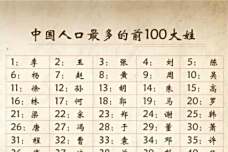 中国人口最多的前100大姓
1: 李 2: 王 3: 张 4: 刘 5: 陈
6: 杨 7: 赵 8: 黄 9: 周 10: 吴
11: 徐 12: 孙 13: 胡 14: 朱 15: 高
16: 林 17: 何 18: 郭 19: 马 20: 罗
21: 梁 22: 宋 23: 郑 24: 谢 25: 韩
26: 唐 27: 冯 28: 于 29: 董 30: 萧
31: 程 32: 曹 33: 袁 34: 邓 35: 许